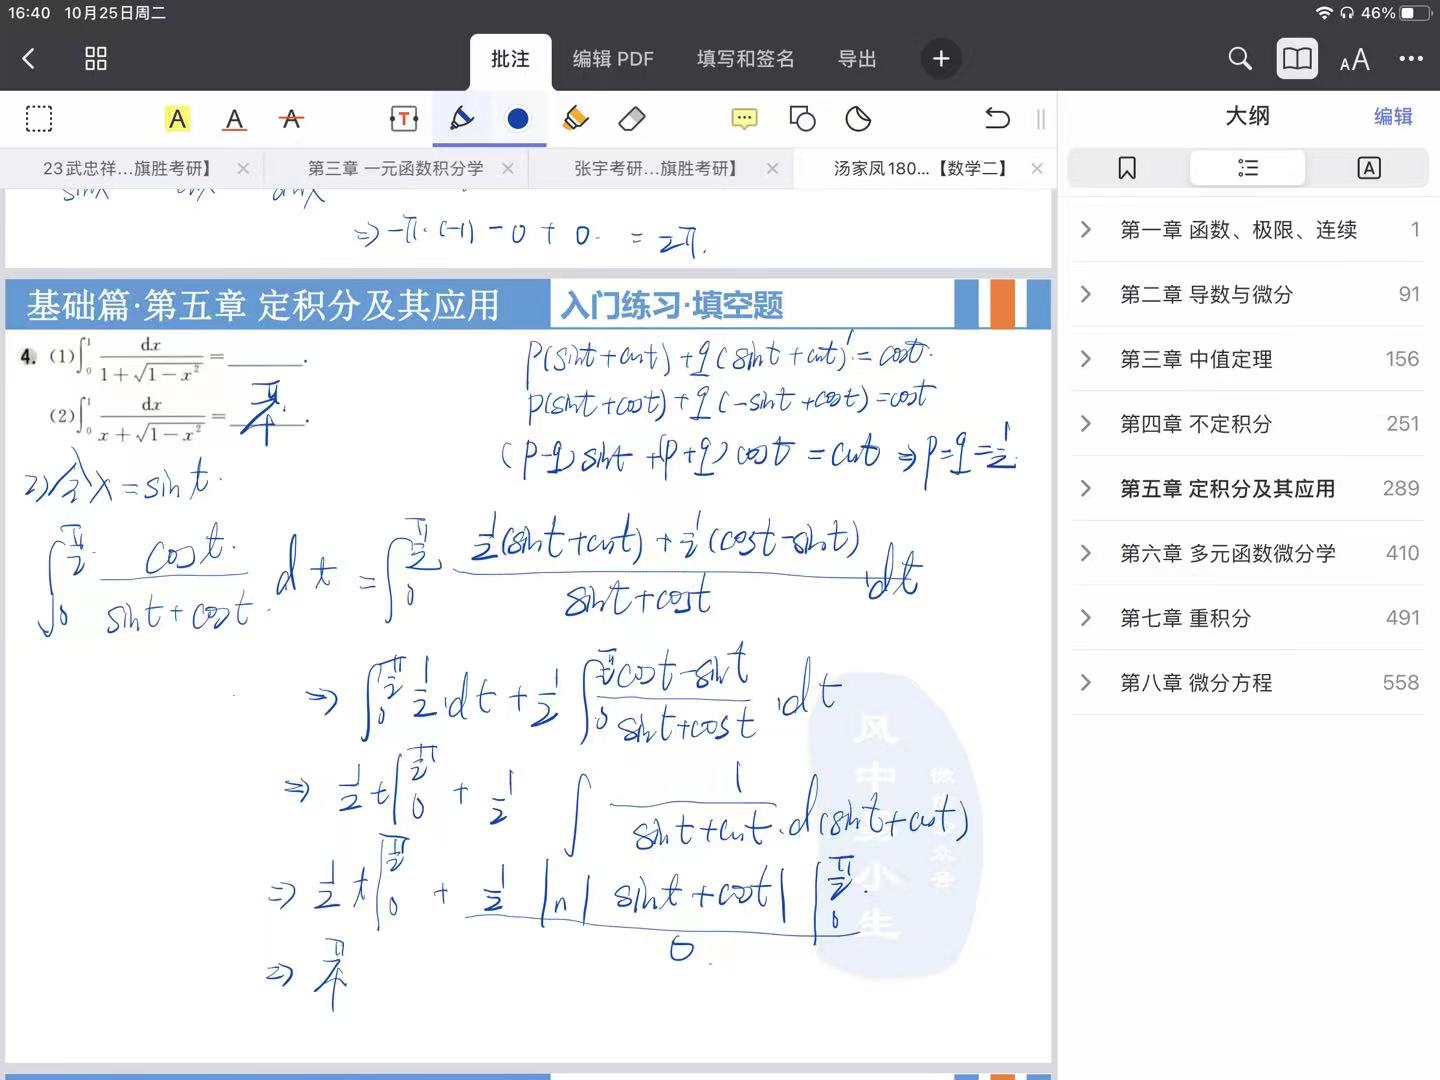 16:40 10月25日周二
46%
批注 编辑 PDF 填写和签名 导出
大纲 编辑
23武忠祥...旗胜考研】 第三章 一元函数积分学 张宇考研...旗胜考研】 汤家凤180...【数学二】
sinx cosx sinx
⇒ -π·(-1) - 0 + 0. = 2π.
基础篇·第五章 定积分及其应用 入门练习·填空题
4. (1) ∫₀¹ dx/(1+√(1-x²)) = ______.
(2) ∫₀¹ dx/(x+√(1-x²)) = π/4.
p(sint+cost)+q(sint+cost)'=cost.
p(sint+cost)+q(-sint+cost)=cost
(p-q)sint+(p+q)cost=cost ⇒ p=q=1/2.
2) 令x=sint.
∫₀^(π/2) cost/(sint+cost) dt = ∫₀^(π/2) (1/2(sint+cost)+1/2(cost-sint))/(sint+cost) dt
⇒ ∫₀^(π/2) 1/2 dt + 1/2 ∫₀^(π/2) (cost-sint)/(sint+cost) dt
⇒ 1/2 t|₀^(π/2) + 1/2 ∫ 1/(sint+cost) d(sint+cost)
⇒ 1/2 t|₀^(π/2) + 1/2 ln|sint+cost| |₀^(π/2)
0
⇒ π/4
风中小生
第一章 函数、极限、连续 1
第二章 导数与微分 91
第三章 中值定理 156
第四章 不定积分 251
第五章 定积分及其应用 289
第六章 多元函数微分学 410
第七章 重积分 491
第八章 微分方程 558